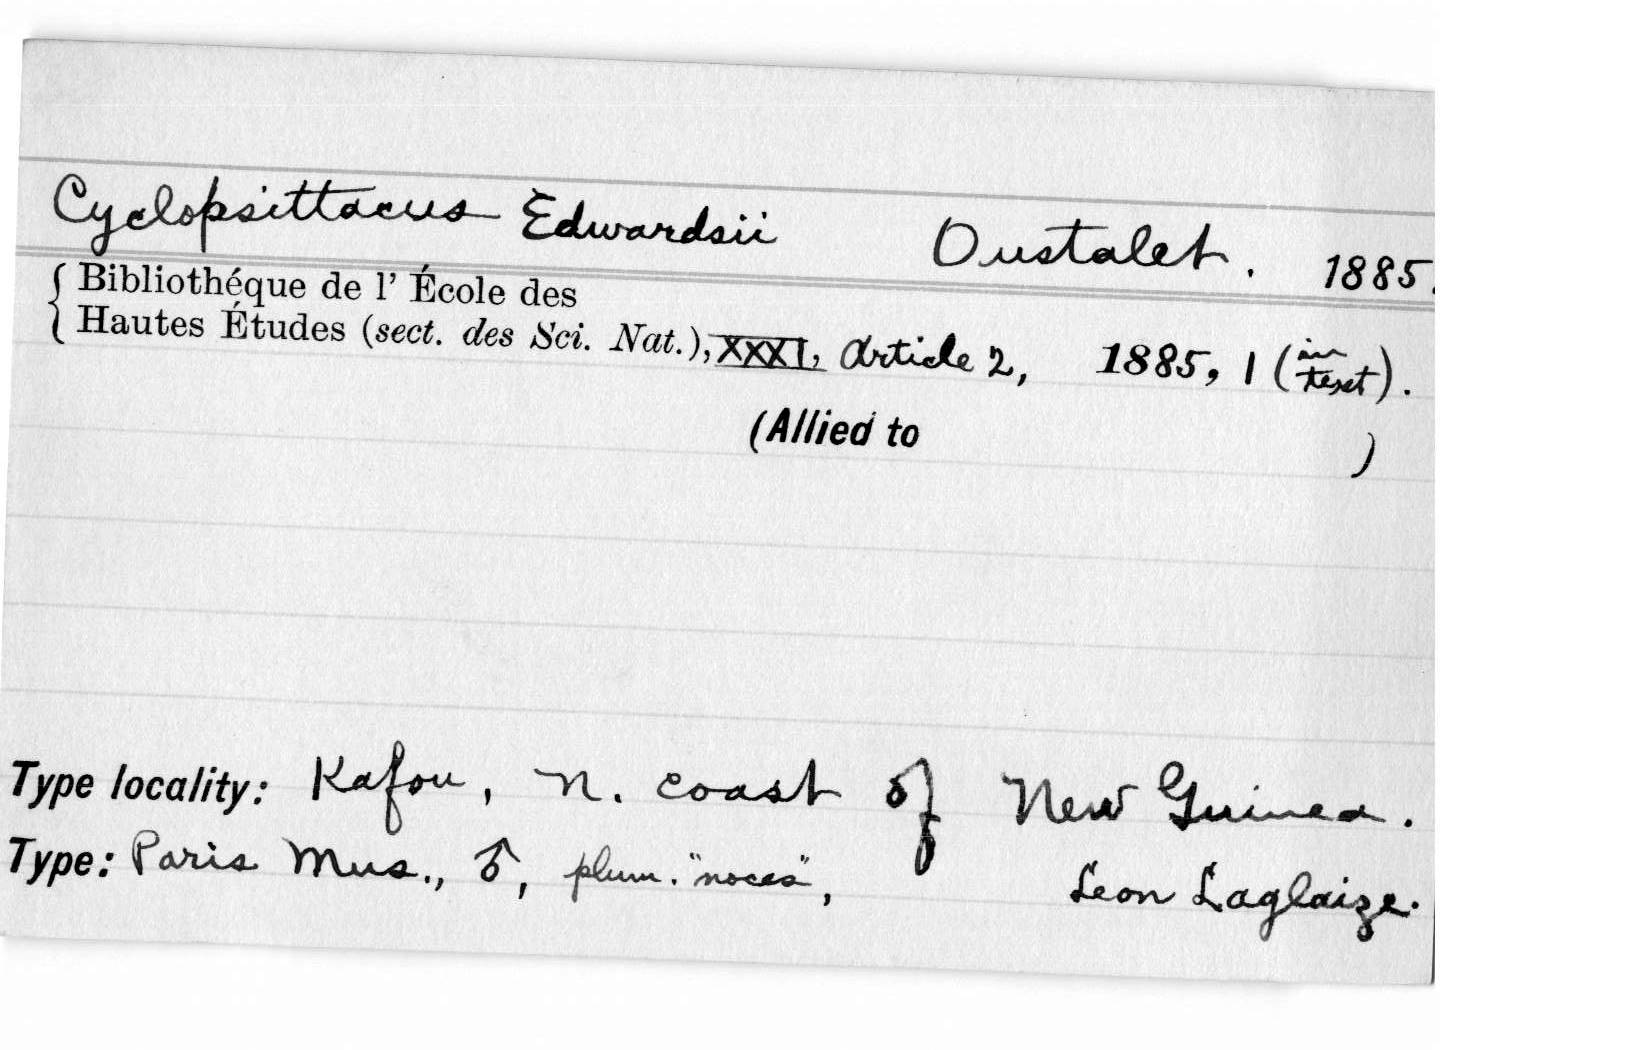 Cyclopsittacus Edwardsii Oustalet. 1885.
{ Bibliothéque de l' École des
Hautes Études (sect. des Sci. Nat.), XXXI, Article 2, 1885, 1 (in text).
(Allied to )
Type locality: Kafou, N. coast of New Guinea.
Type: Paris Mus., ♂, plum. "noces", Leon Laglaize.